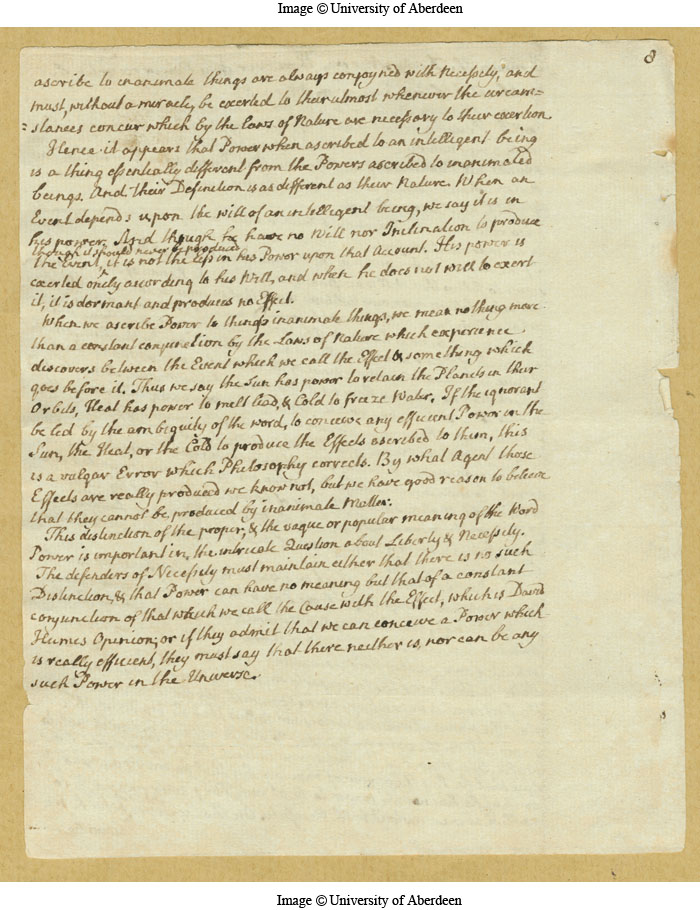 Image © University of Aberdeen
8
ascribe to inanimate things are always conjoyned with Necessity, and
must, without a miracle, be exerted to their utmost whenever the circum=
=stances concur which by the Laws of Nature are necessary to their exertion
Hence it appears that Power when ascribed to an intelligent being
is a thing essentially different from the Powers ascribed to inanimated
beings. And their Definition is as different as their Nature. When an
Event depends upon the will of an intelligent being, we say it is in
his power. And though he have no Will nor Inclination to produce
though it should never be produced
the Event, it is not the less in his Power upon that Account. His power is
exerted onely according to his Will, and when he does not will to exert
it, it is dormant and produces no Effect.
When we ascribe Power to things inanimate things, we mean nothing more
than a constant conjunction by the Laws of Nature which experience
discovers between the Event which we call the Effect & something which
goes before it. Thus we say the Sun has power to retain the Planets in their
Orbits, Heat has power to melt lead, & Cold to freeze Water. If the ignorant
be led by the ambiguity of the word, to conceive any efficient Power in the
Sun, the Heat, or the Cold to produce the Effects ascribed to them, this
is a vulgar Error which Philosophy corrects. By what Agent those
Effects are really produced we know not, but we have good reason to believe
that they cannot be produced by inanimate Matter.
This distinction of the proper, & the vague or popular meaning of the Word
Power is important in, the intricate Question about Liberty & Necessity.
The defenders of Necessity must maintain either that there is no such
Distinction, & that Power can have no meaning but that of a constant
conjunction of that which we call the Cause with the Effect, which is David
Humes Opinion; or if they admit that we can conceive a Power which
is really efficient, they must say that there neither is, nor can be any
such Power in the Universe.
Image © University of Aberdeen